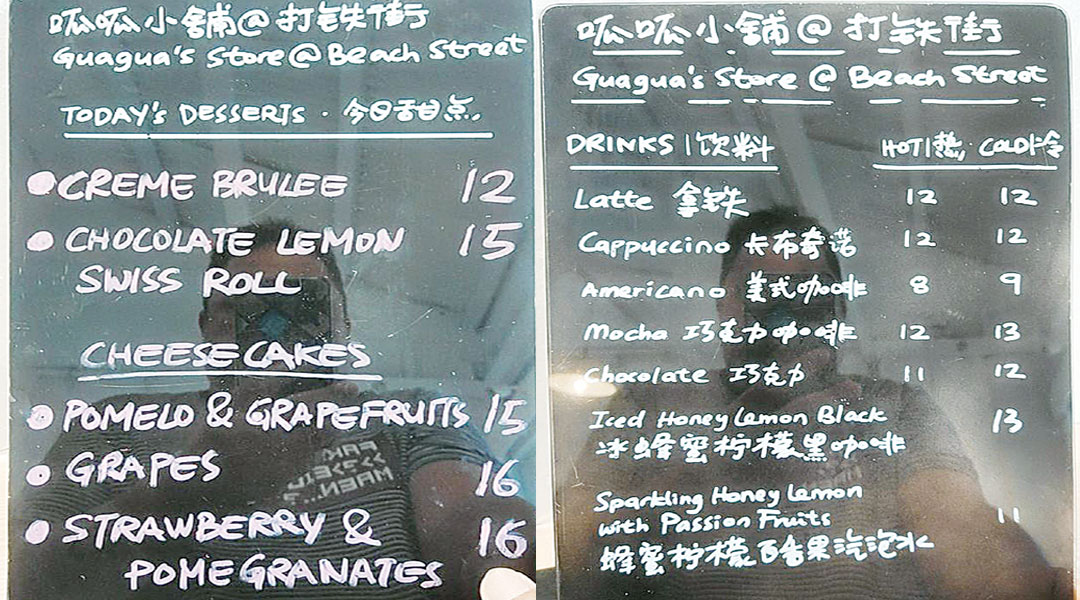 呱呱小舖@打铁街
Guagua's Store@Beach Street
TODAY'S DESSERTS · 今日甜点.
CREME BRULEE 12
CHOCOLATE LEMON 15
SWISS ROLL
CHEESECAKES
POMELO & GRAPEFRUITS 15
GRAPES 16
STRAWBERRY & 16
POMEGRANATES
呱呱小舖@打铁街
Guagua's Store@Beach Street
DRINKS | 饮料 HOT|热, COLD|冷
Latte 拿铁 12 12
Cappuccino 卡布奇诺 12 12
Americano 美式咖啡 8 9
Mocha 巧克力咖啡 12 13
Chocolate 巧克力 11 12
Iced Honey Lemon Black 13
冰蜂蜜柠檬黑咖啡
Sparkling Honey Lemon
with Passion Fruits 11
蜂蜜柠檬百香果汽泡水